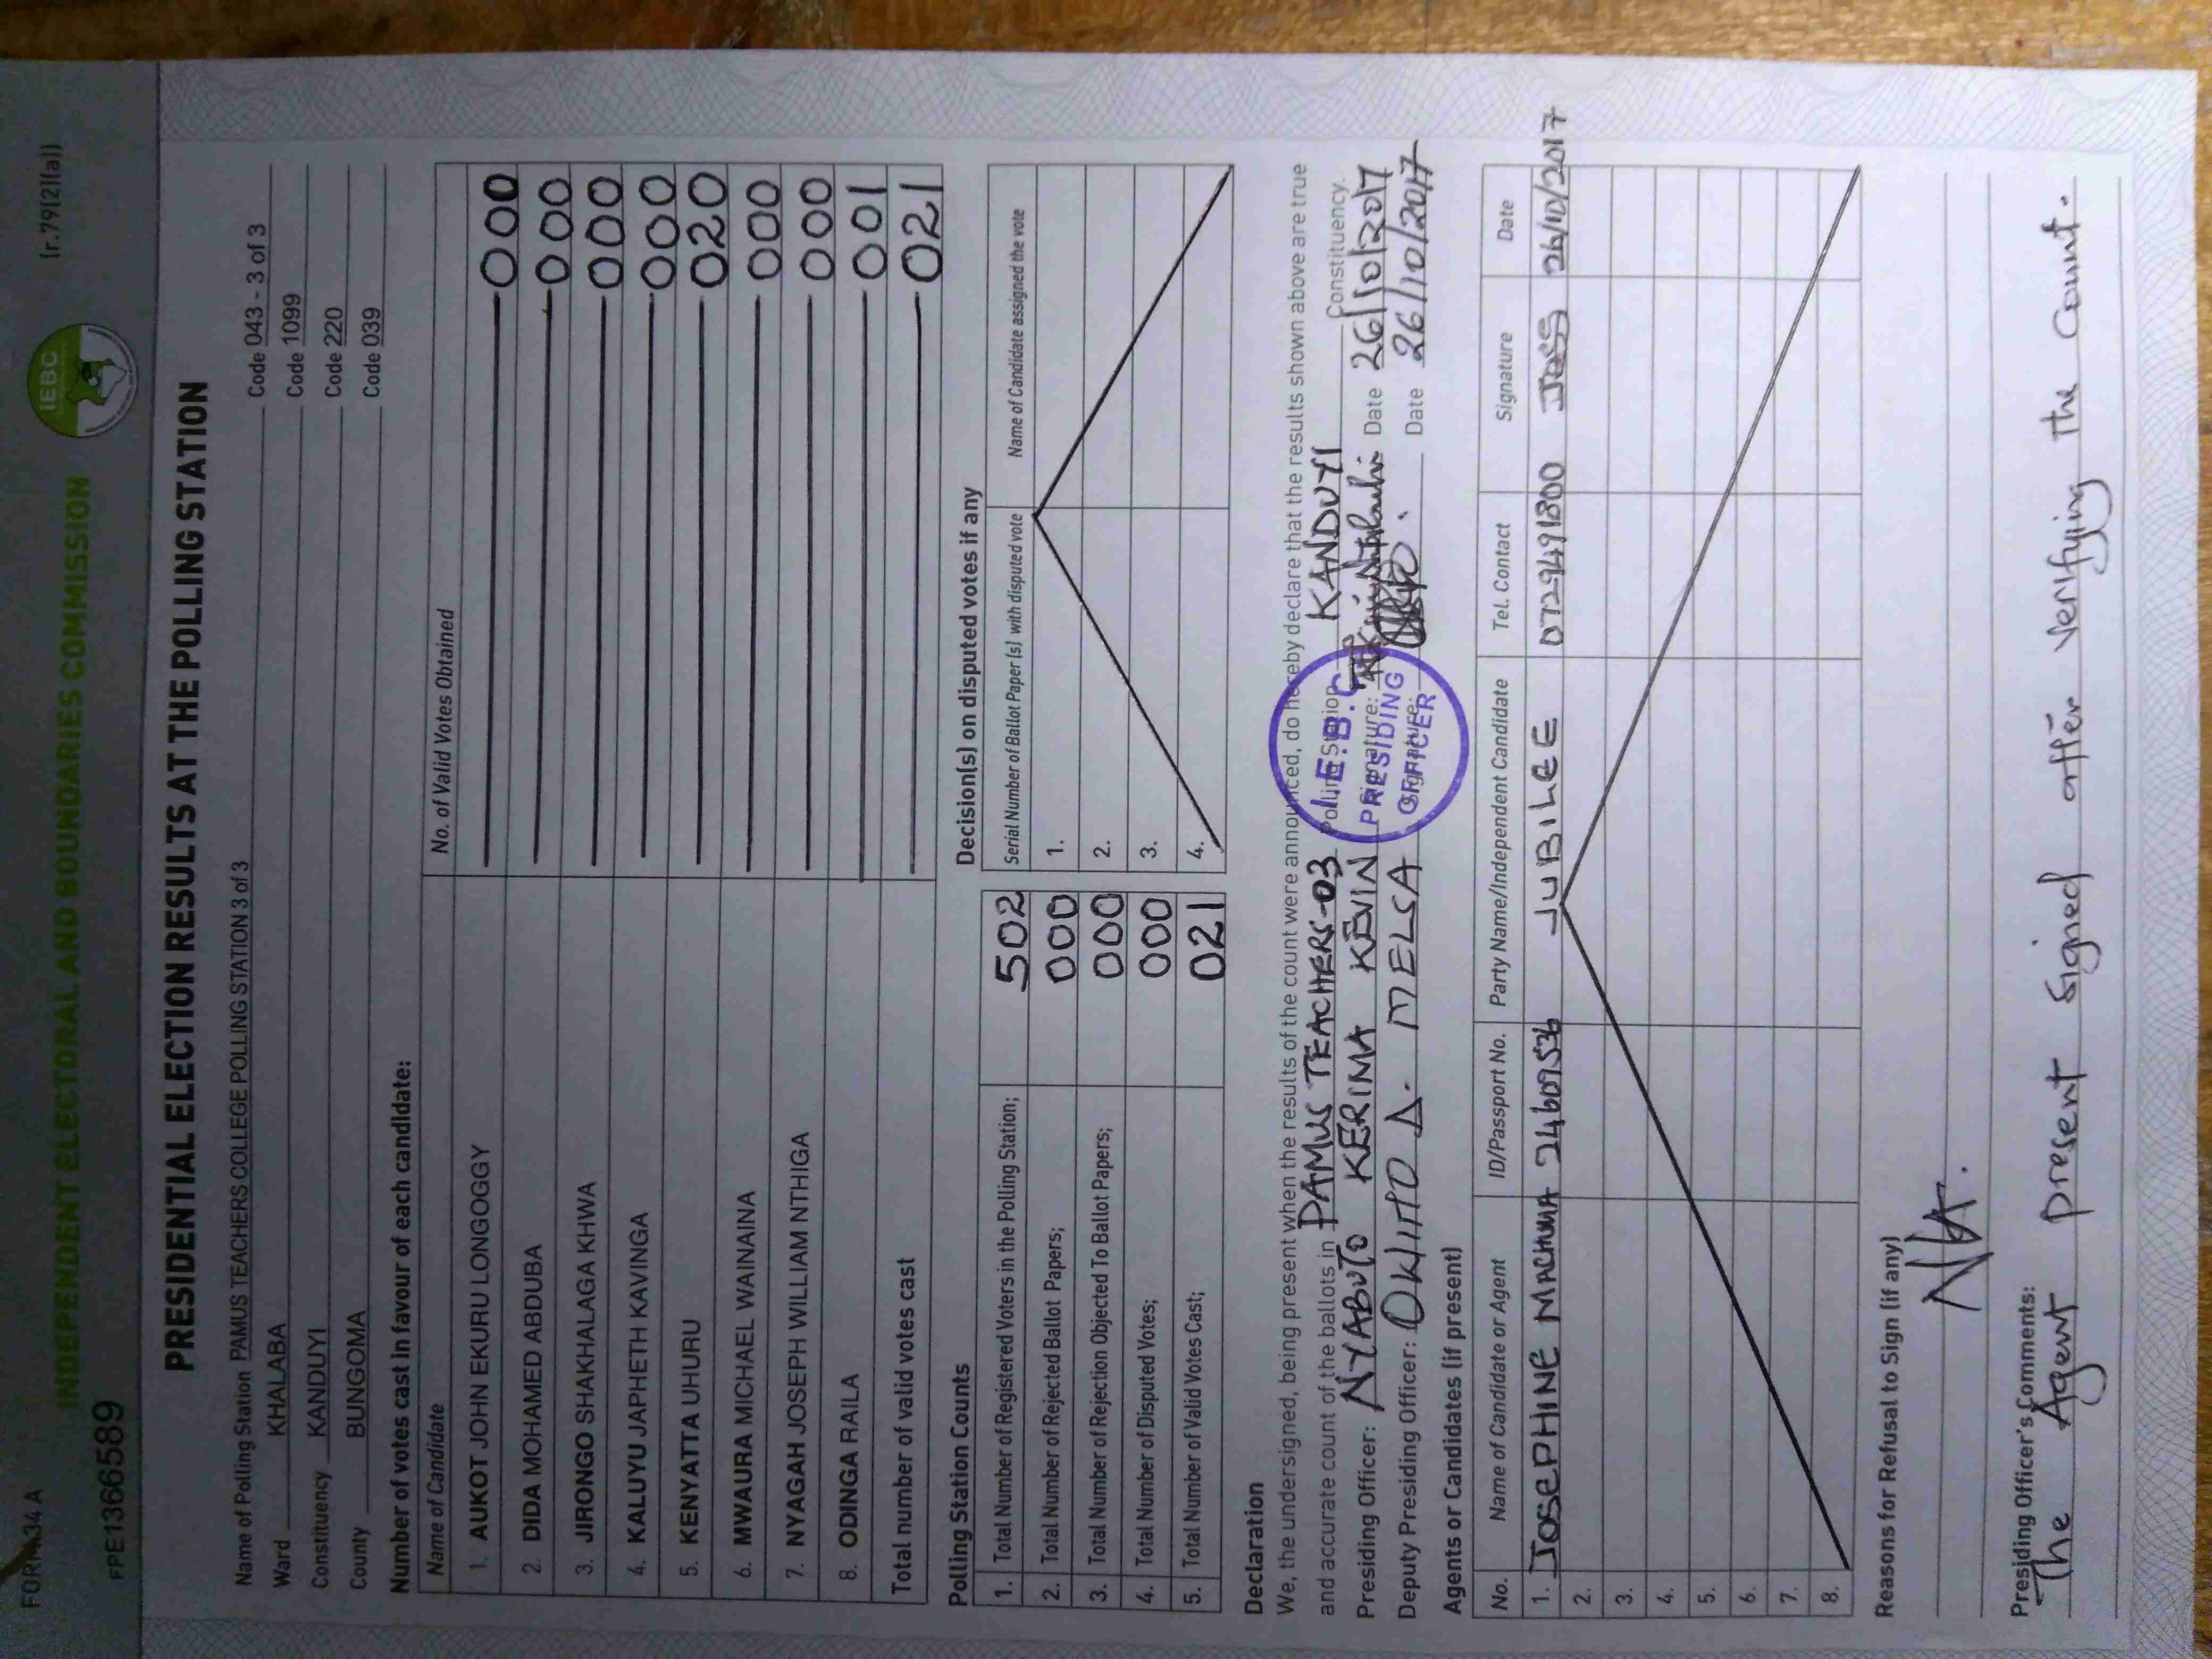 FORM 34 A
(r.79(2)(a))
INDEPENDENT ELECTORAL AND BOUNDARIES COMMISSION
IEBC
FPE1366589
PRESIDENTIAL ELECTION RESULTS AT THE POLLING STATION
Name of Polling Station PAMUS TEACHERS COLLEGE POLLING STATION 3 of 3 Code 043 - 3 of 3
Ward KHALABA Code 1099
Constituency KANDUYI Code 220
County BUNGOMA Code 039
Number of votes cast in favour of each candidate:
Name of Candidate No. of Valid Votes Obtained
1. AUKOT JOHN EKURU LONGOGGY 000
2. DIDA MOHAMED ABDUBA 000
3. JIRONGO SHAKHALAGA KHWA 000
4. KALUYU JAPHETH KAVINGA 000
5. KENYATTA UHURU 020
6. MWAURA MICHAEL WAINAINA 000
7. NYAGAH JOSEPH WILLIAM NTHIGA 000
8. ODINGA RAILA 001
Total number of valid votes cast 021
Polling Station Counts
1. Total Number of Registered Voters in the Polling Station; 502
2. Total Number of Rejected Ballot Papers; 000
3. Total Number of Rejection Objected To Ballot Papers; 000
4. Total Number of Disputed Votes; 000
5. Total Number of Valid Votes Cast; 021
Decision(s) on disputed votes if any
Serial Number of Ballot Paper (s) with disputed vote Name of Candidate assigned the vote
1.
2.
3.
4.
Declaration
We, the undersigned, being present when the results of the count were announced, do hereby declare that the results shown above are true
and accurate count of the ballots in PAMUS TEACHERS-03 Polling Station KANDUYI Constituency.
Presiding Officer: NYABUTO KERIMA KEVIN Signature: Date 26/10/2017
Deputy Presiding Officer: OKUMO D. MELSA Signature: Date 26/10/2017
I.E.B.C
PRESIDING
OFFICER
Agents or Candidates (if present)
No. Name of Candidate or Agent ID/Passport No. Party Name/Independent Candidate Tel. Contact Signature Date
1. JOSEPHINE MACHUMA 24609536 JUBILEE 0729491800 26/10/2017
2.
3.
4.
5.
6.
7.
8.
Reasons for Refusal to Sign (if any)
N/A.
Presiding Officer's Comments:
The Agent present signed after verifying the count.